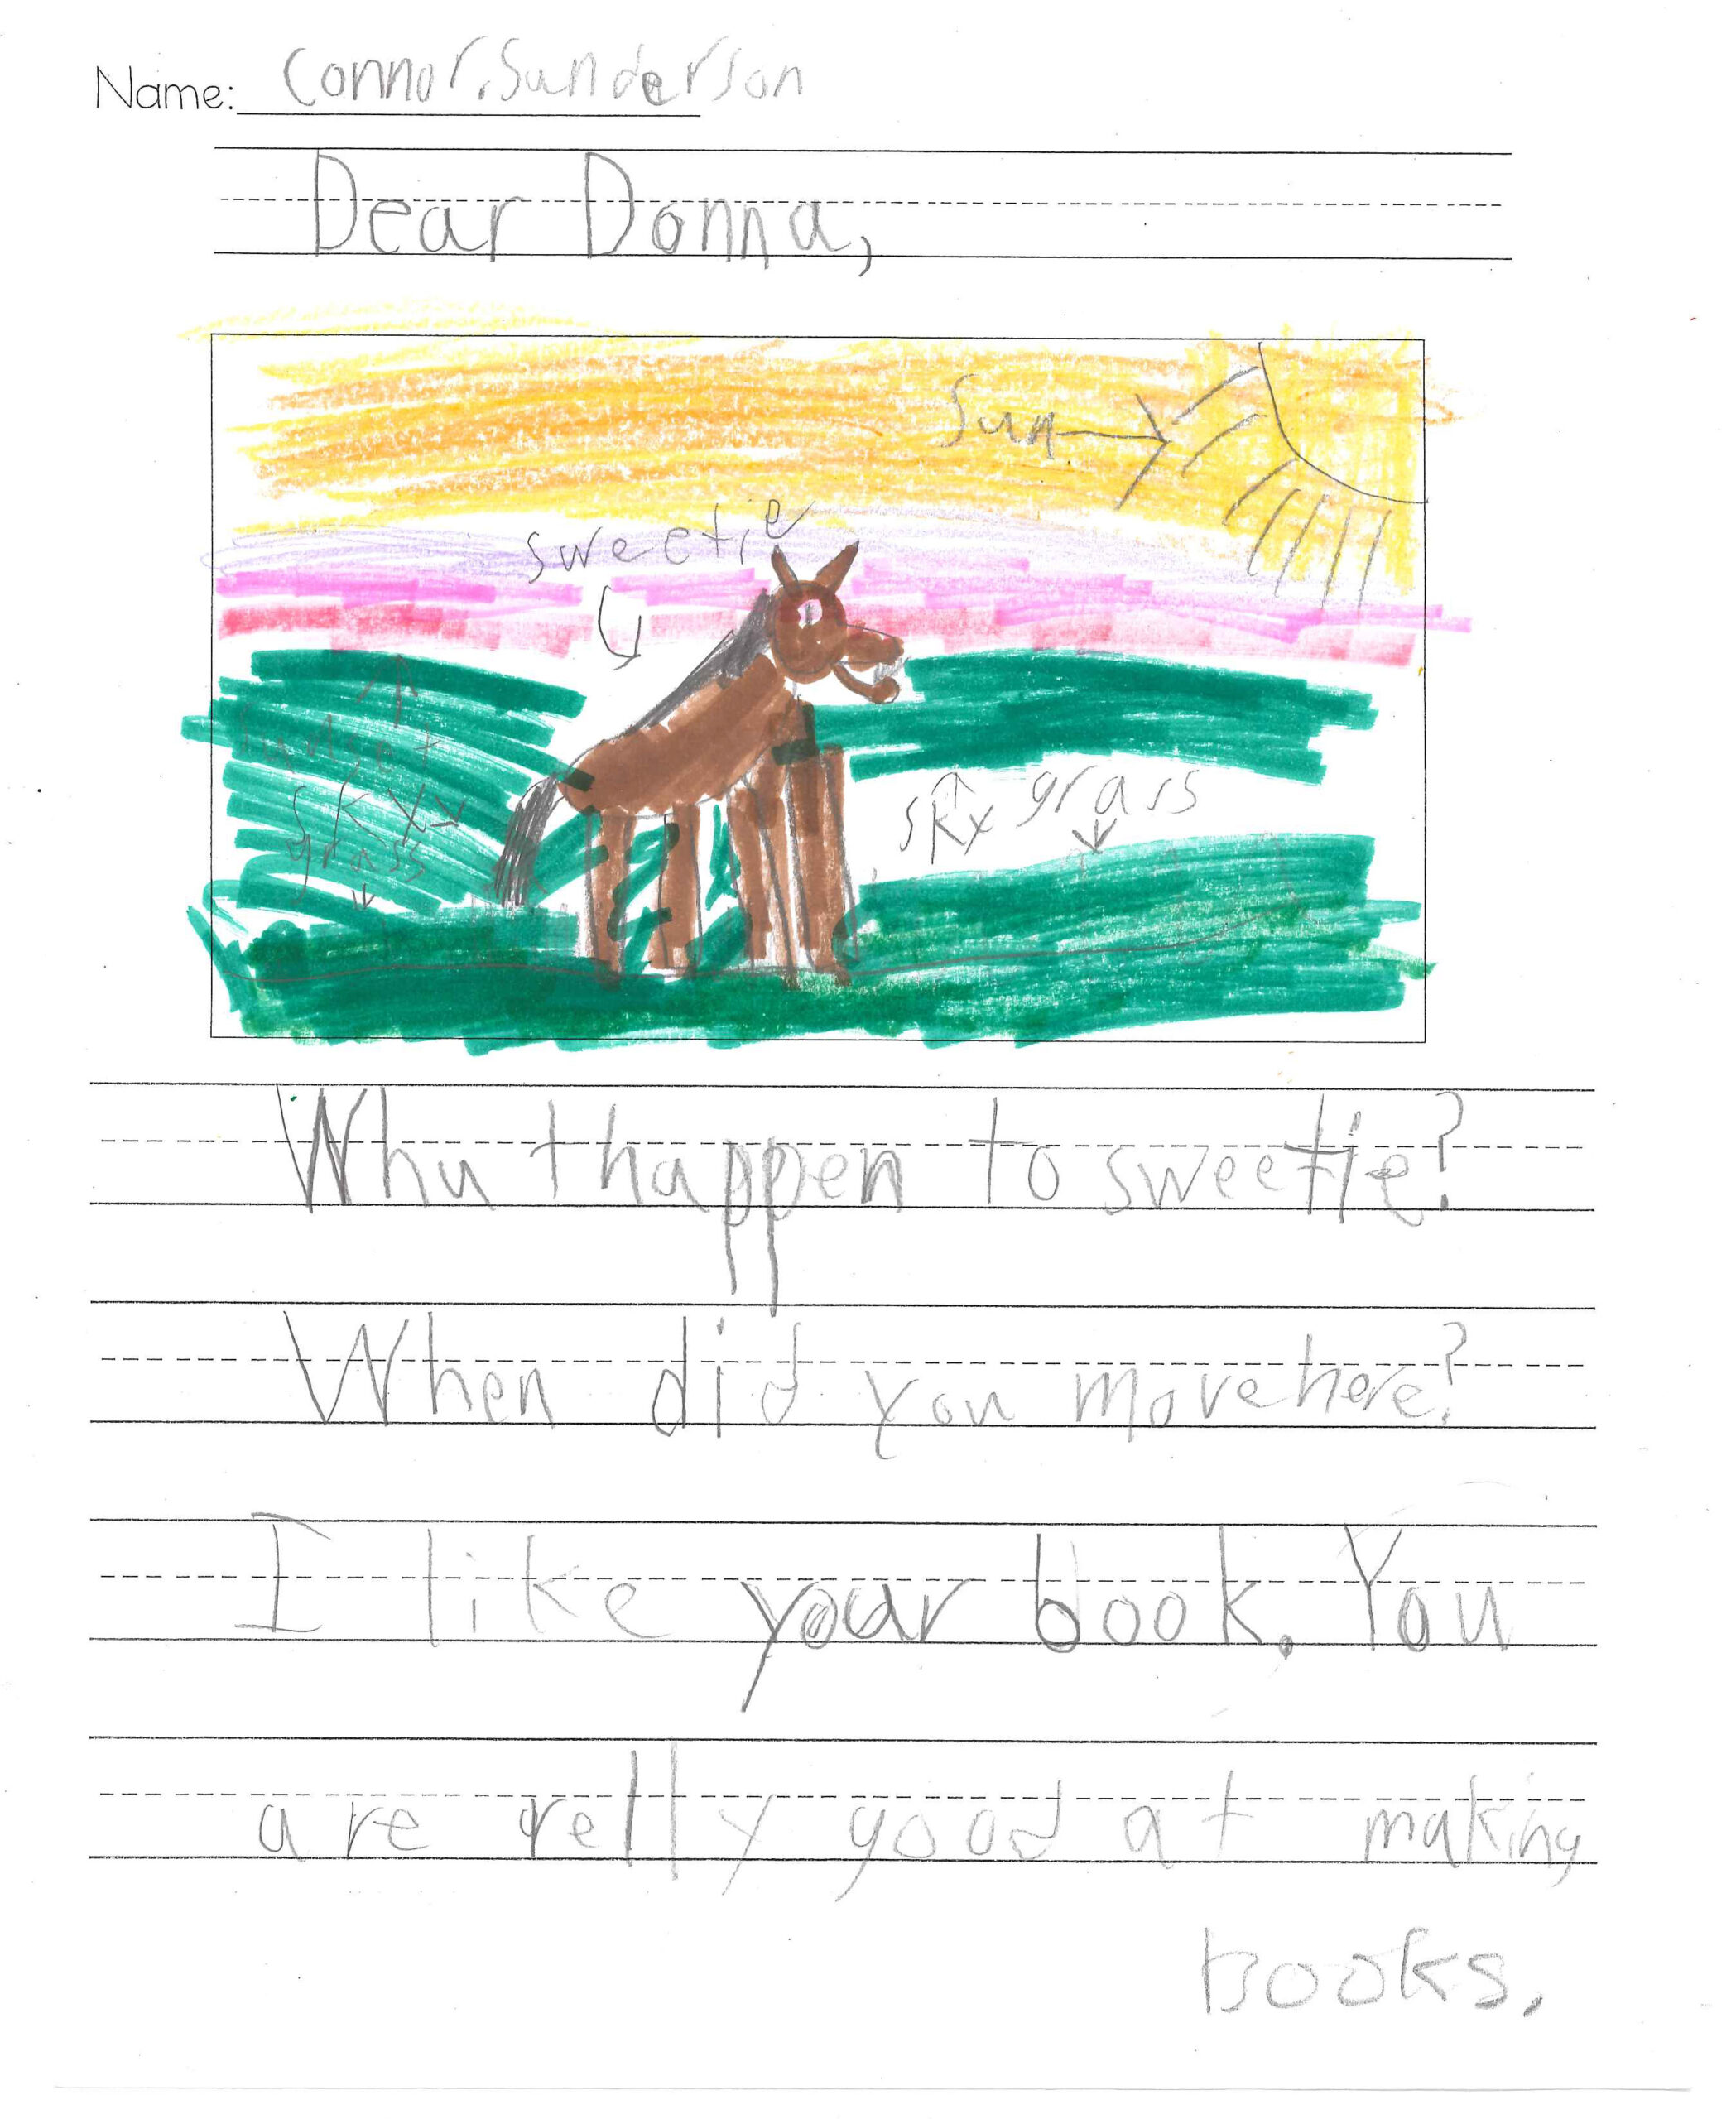 Name: Connor.Sunderson
Dear Donna,
Sun
sweetie
sunset
sky
grass
sky grass
Whu thappen to sweetie?
When did you move here?
I like your book. You
are relly good at making
books.